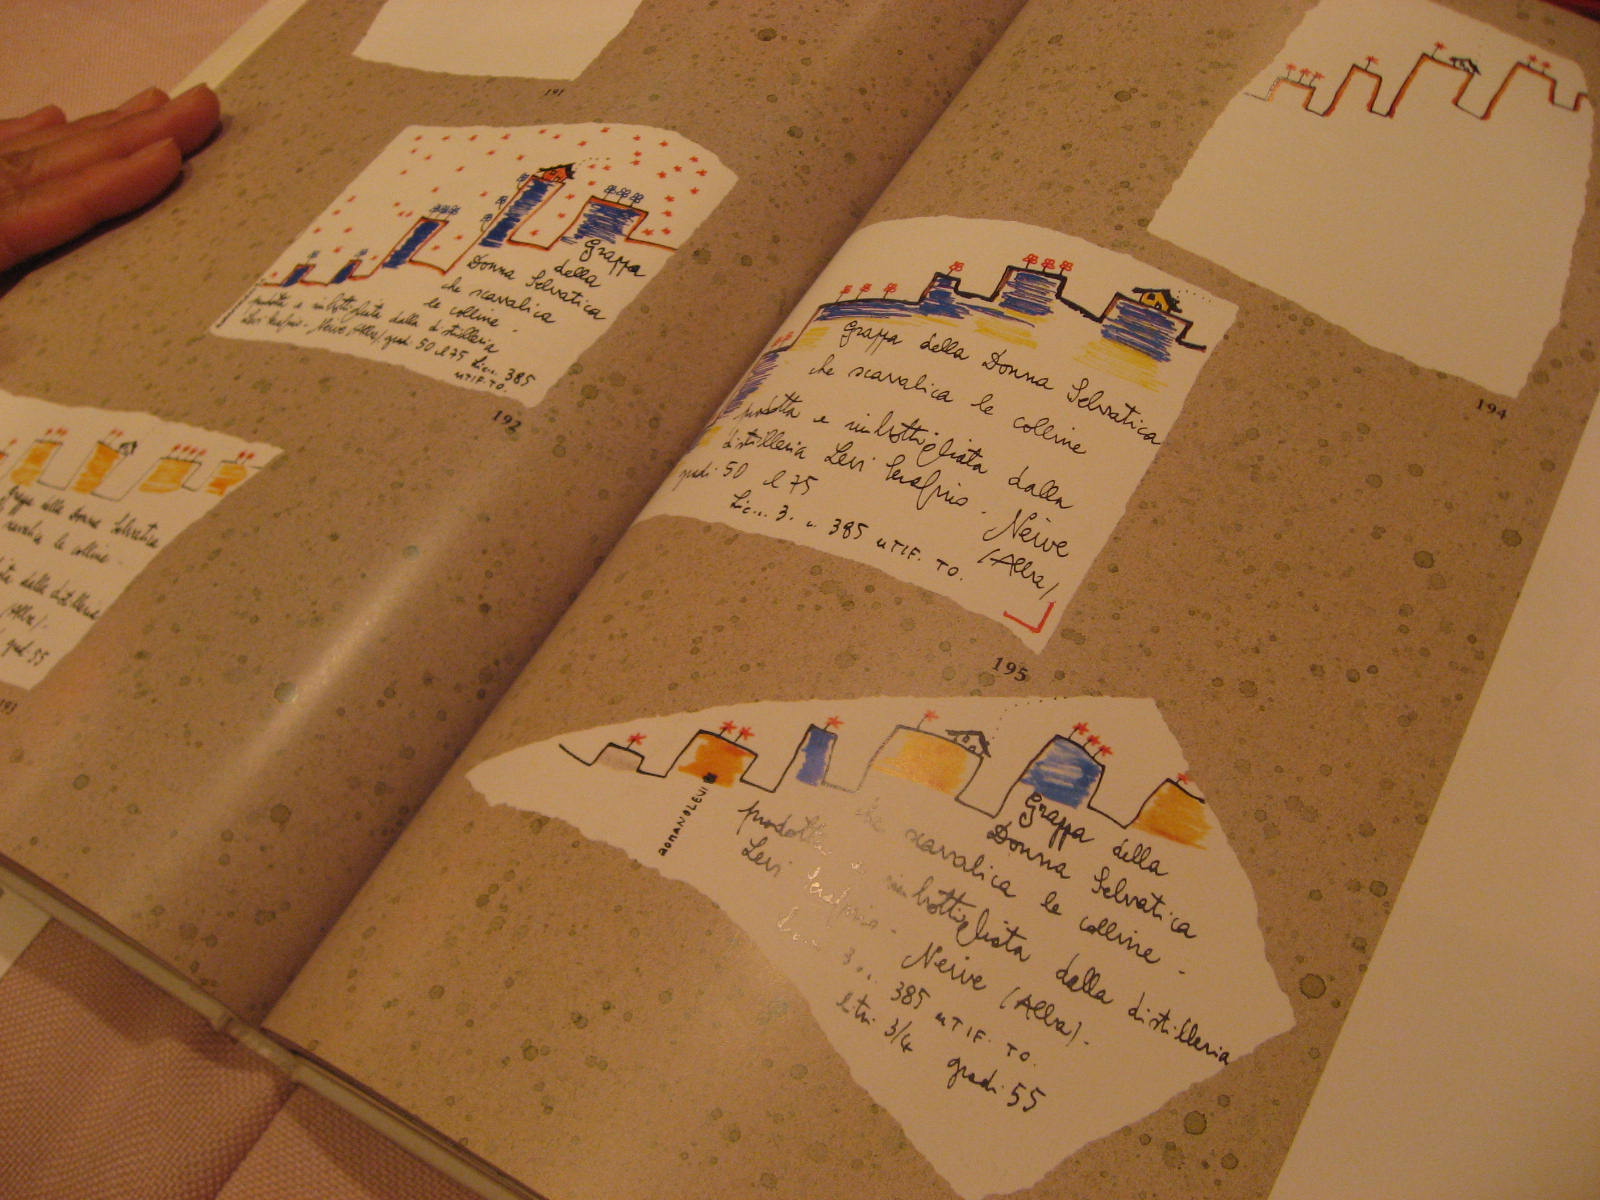 191
Grappa
della
Donna Selvatica
che scavalica
le colline -
prodotta e imbottigliata dalla distilleria
Levi Serafino - Neive (Alba) gradi 50 l 75 Lic... 385
UTIF. TO.
192
Grappa della Donna Selvatica
scavalica le colline -
dalla distilleria
(Alba) -
gradi 55
193
194
Grappa della Donna Selvatica
che scavalica le colline
prodotta e imbottigliata dalla
distilleria Levi Serafino - Neive
gradi 50 l 75 (Alba)
Lic... 3. n. 385 UTIF. TO.
195
ROMANO LEVI
Grappa della
Donna Selvatica
che scavalica le colline -
prodotta e imbottigliata dalla distilleria
Levi Serafino - Neive (Alba) -
3.. 385 UTIF. TO.
litri 3/4 gradi 55